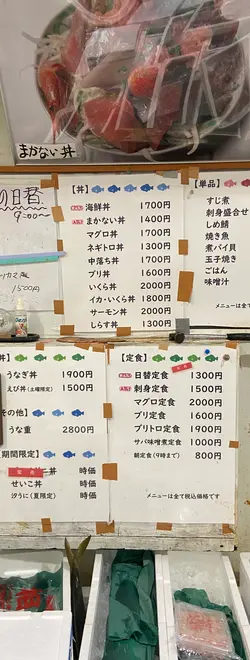 まかない丼
日替
9:00～
1500円
【丼】
海鮮丼 1700円
まかない丼 1400円
マグロ丼 1700円
ネギトロ丼 1300円
中落ち丼 1700円
ブリ丼 1600円
いくら丼 2000円
イカ・いくら丼 1800円
サーモン丼 2000円
しらす丼 1300円
【単品】
すじ煮
刺身盛合せ
しめ鯖
焼き魚
煮バイ貝
玉子焼き
ごはん
味噌汁
メニューは全
丼】
うなぎ丼 1900円
えび丼(土曜限定) 1500円
その他】
うな重 2800円
期間限定】
丼 時価
せいこ丼 時価
汐うに(夏限定) 時価
【定食】
日替定食 1300円
刺身定食 1500円
マグロ定食 2000円
ブリ定食 1600円
ブリトロ定食 1900円
サバ味噌煮定食 1000円
朝定食(9時まで) 800円
メニューは全て税込価格です